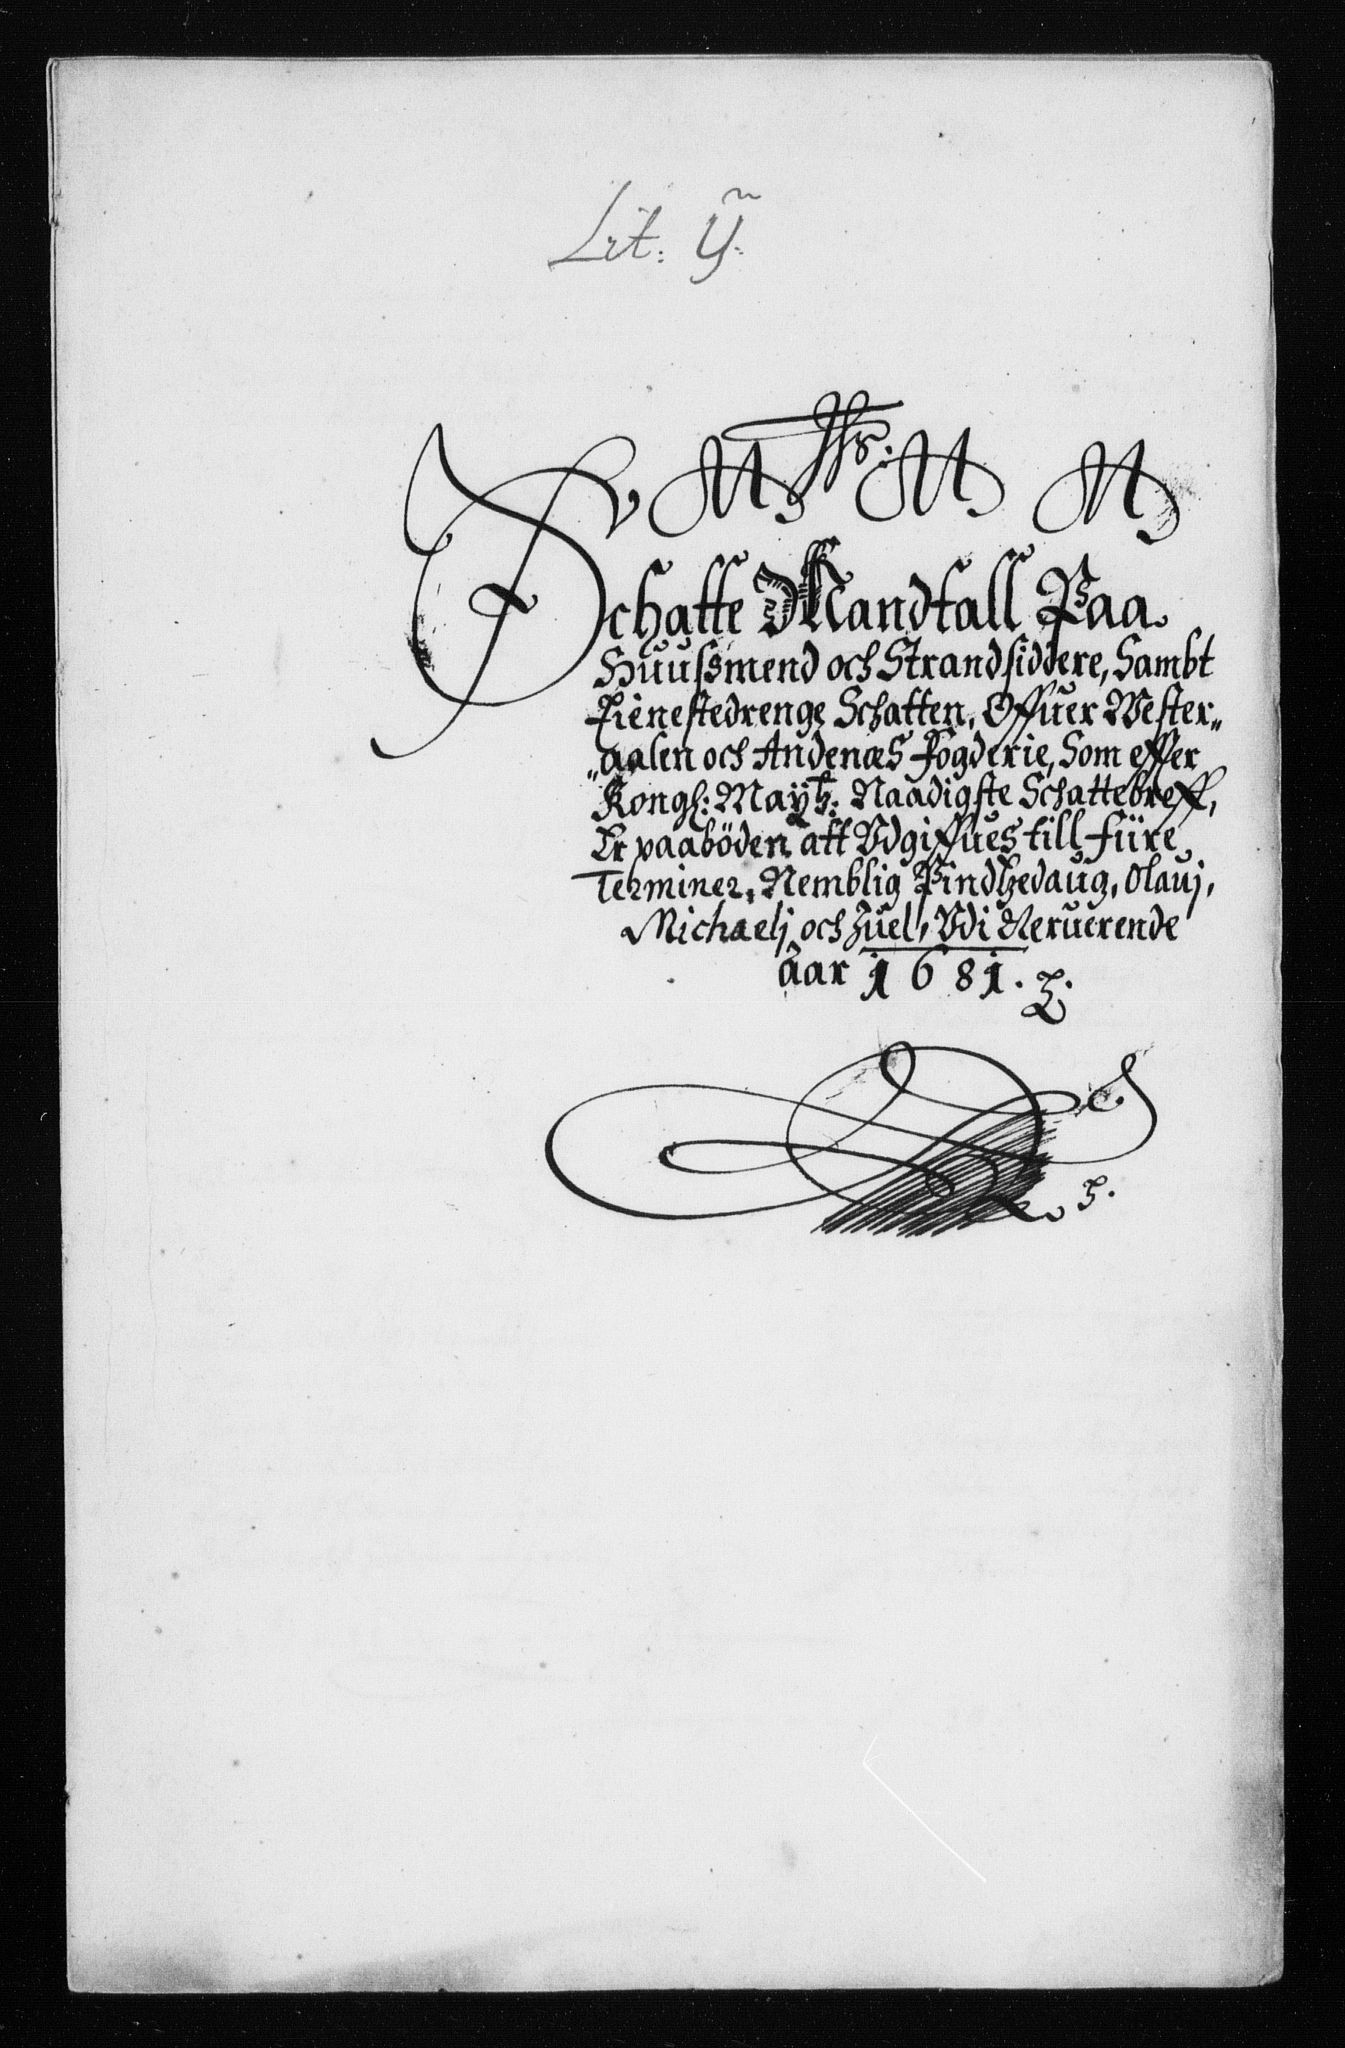 Lit: ÿ.
Schatte Mandtall Paa
Huussmend och Strandsiddere, Sambt
Tienestedrenge Schatten, Offuer Wester„
„aalen och Andenæs Fogderie, Som effter
Kongl: Mayꜩ: Naadigste Schattebreff,
Er paaböden att Vdgiffues till fiire
Terminer, Nemblig Pindtzedaug, Olauj,
Michaelj och Juel, Vdi Neruerende
Aar 1681.